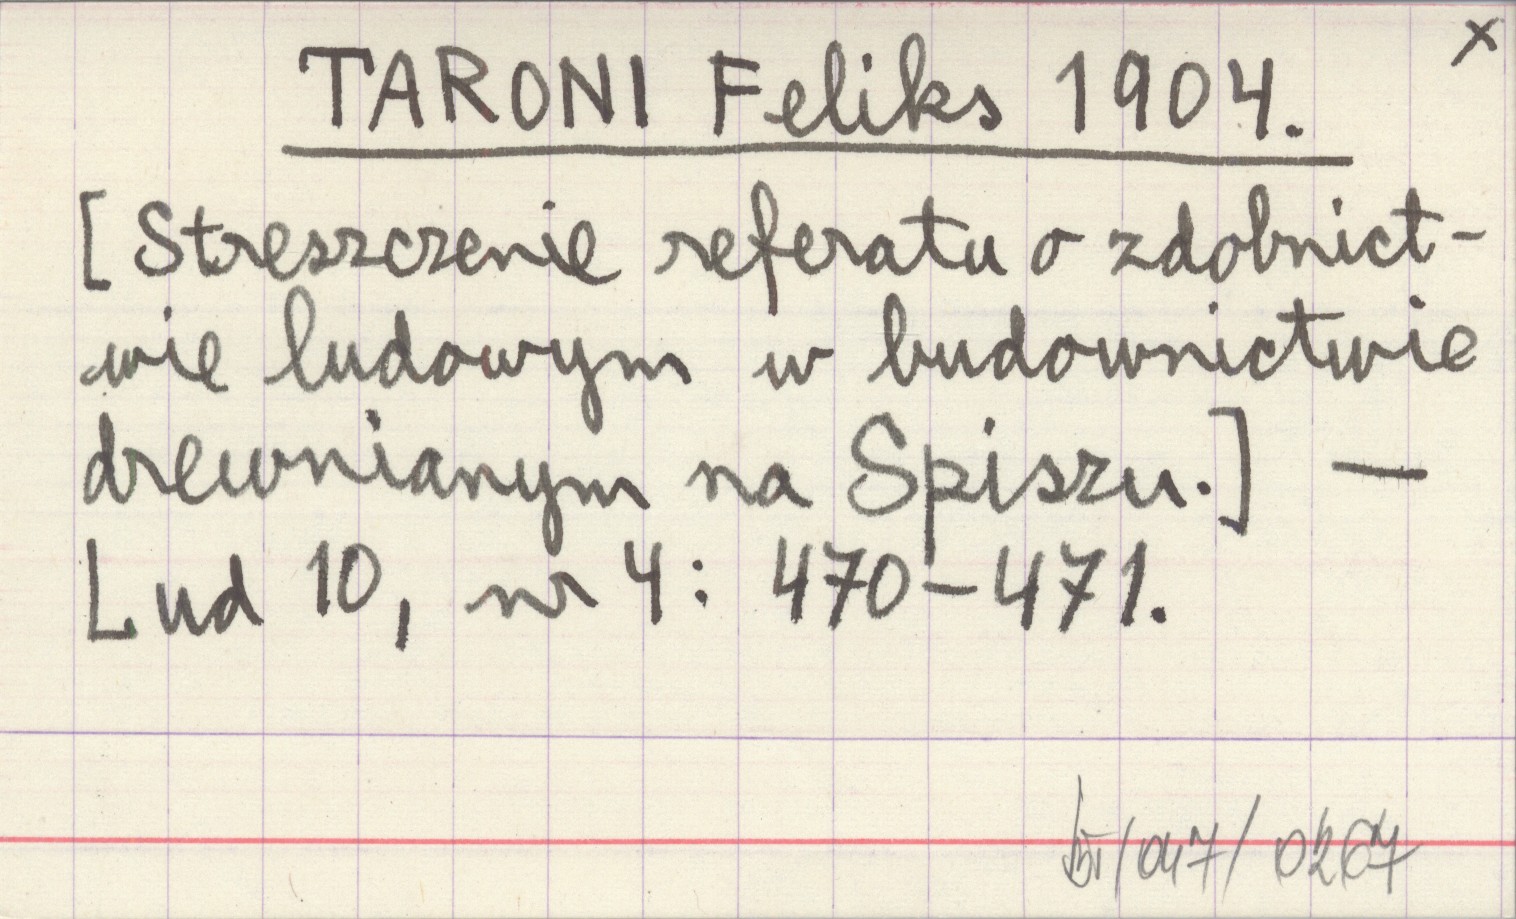 x
TARONI Feliks 1904.
[Streszczenie referatu o zdobnict-
wie ludowym w budownictwie
drewnianym na Spiszu.] —
Lud 10, nr 4: 470-471.
/047/0267